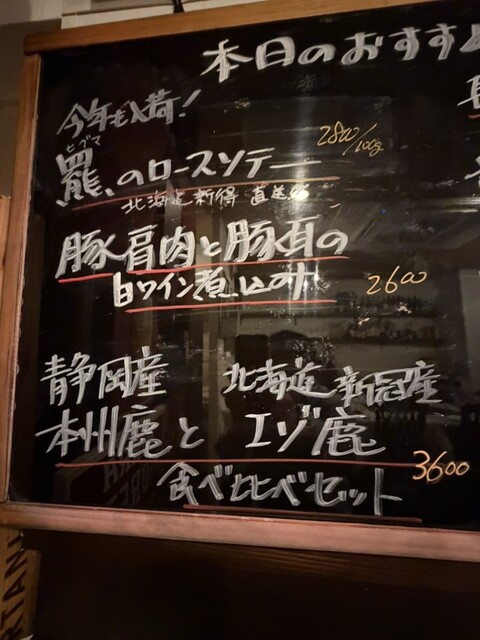 本日のおすすめ
今年も入荷!
ヒグマ
羆のロースソテー 2800/100g
北海道新得 直送
豚肩肉と豚耳の
白ワイン煮込み 2600
静岡産 北海道新冠産
本州鹿と エゾ鹿
3600
食べ比べセット